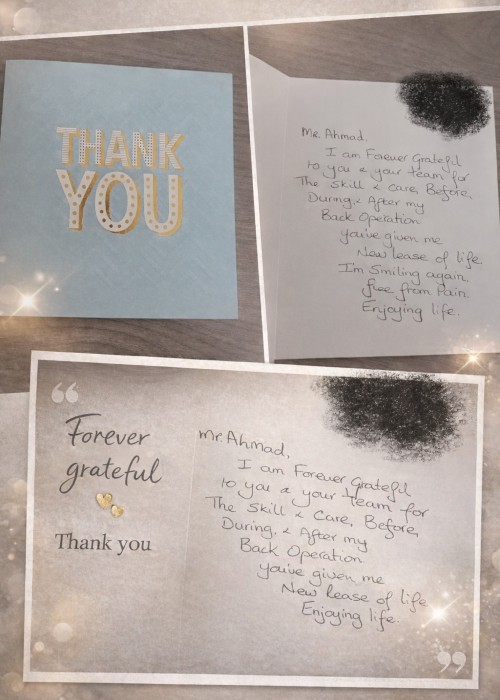 THANK
YOU
Mr. Ahmad.
I am Forever Grateful
to you & your team for
The Skill & Care, Before,
During, & After my
Back Operation
you've given me
New lease of life
I'm Smiling again.
free from Pain.
Enjoying life.
“
Forever
grateful
Thank you
Mr. Ahmad,
I am Forever Grateful
to you & your team for
The Skill & Care, Before,
During, & After my
Back Operation
you've given me
New lease of life
Enjoying life.
”